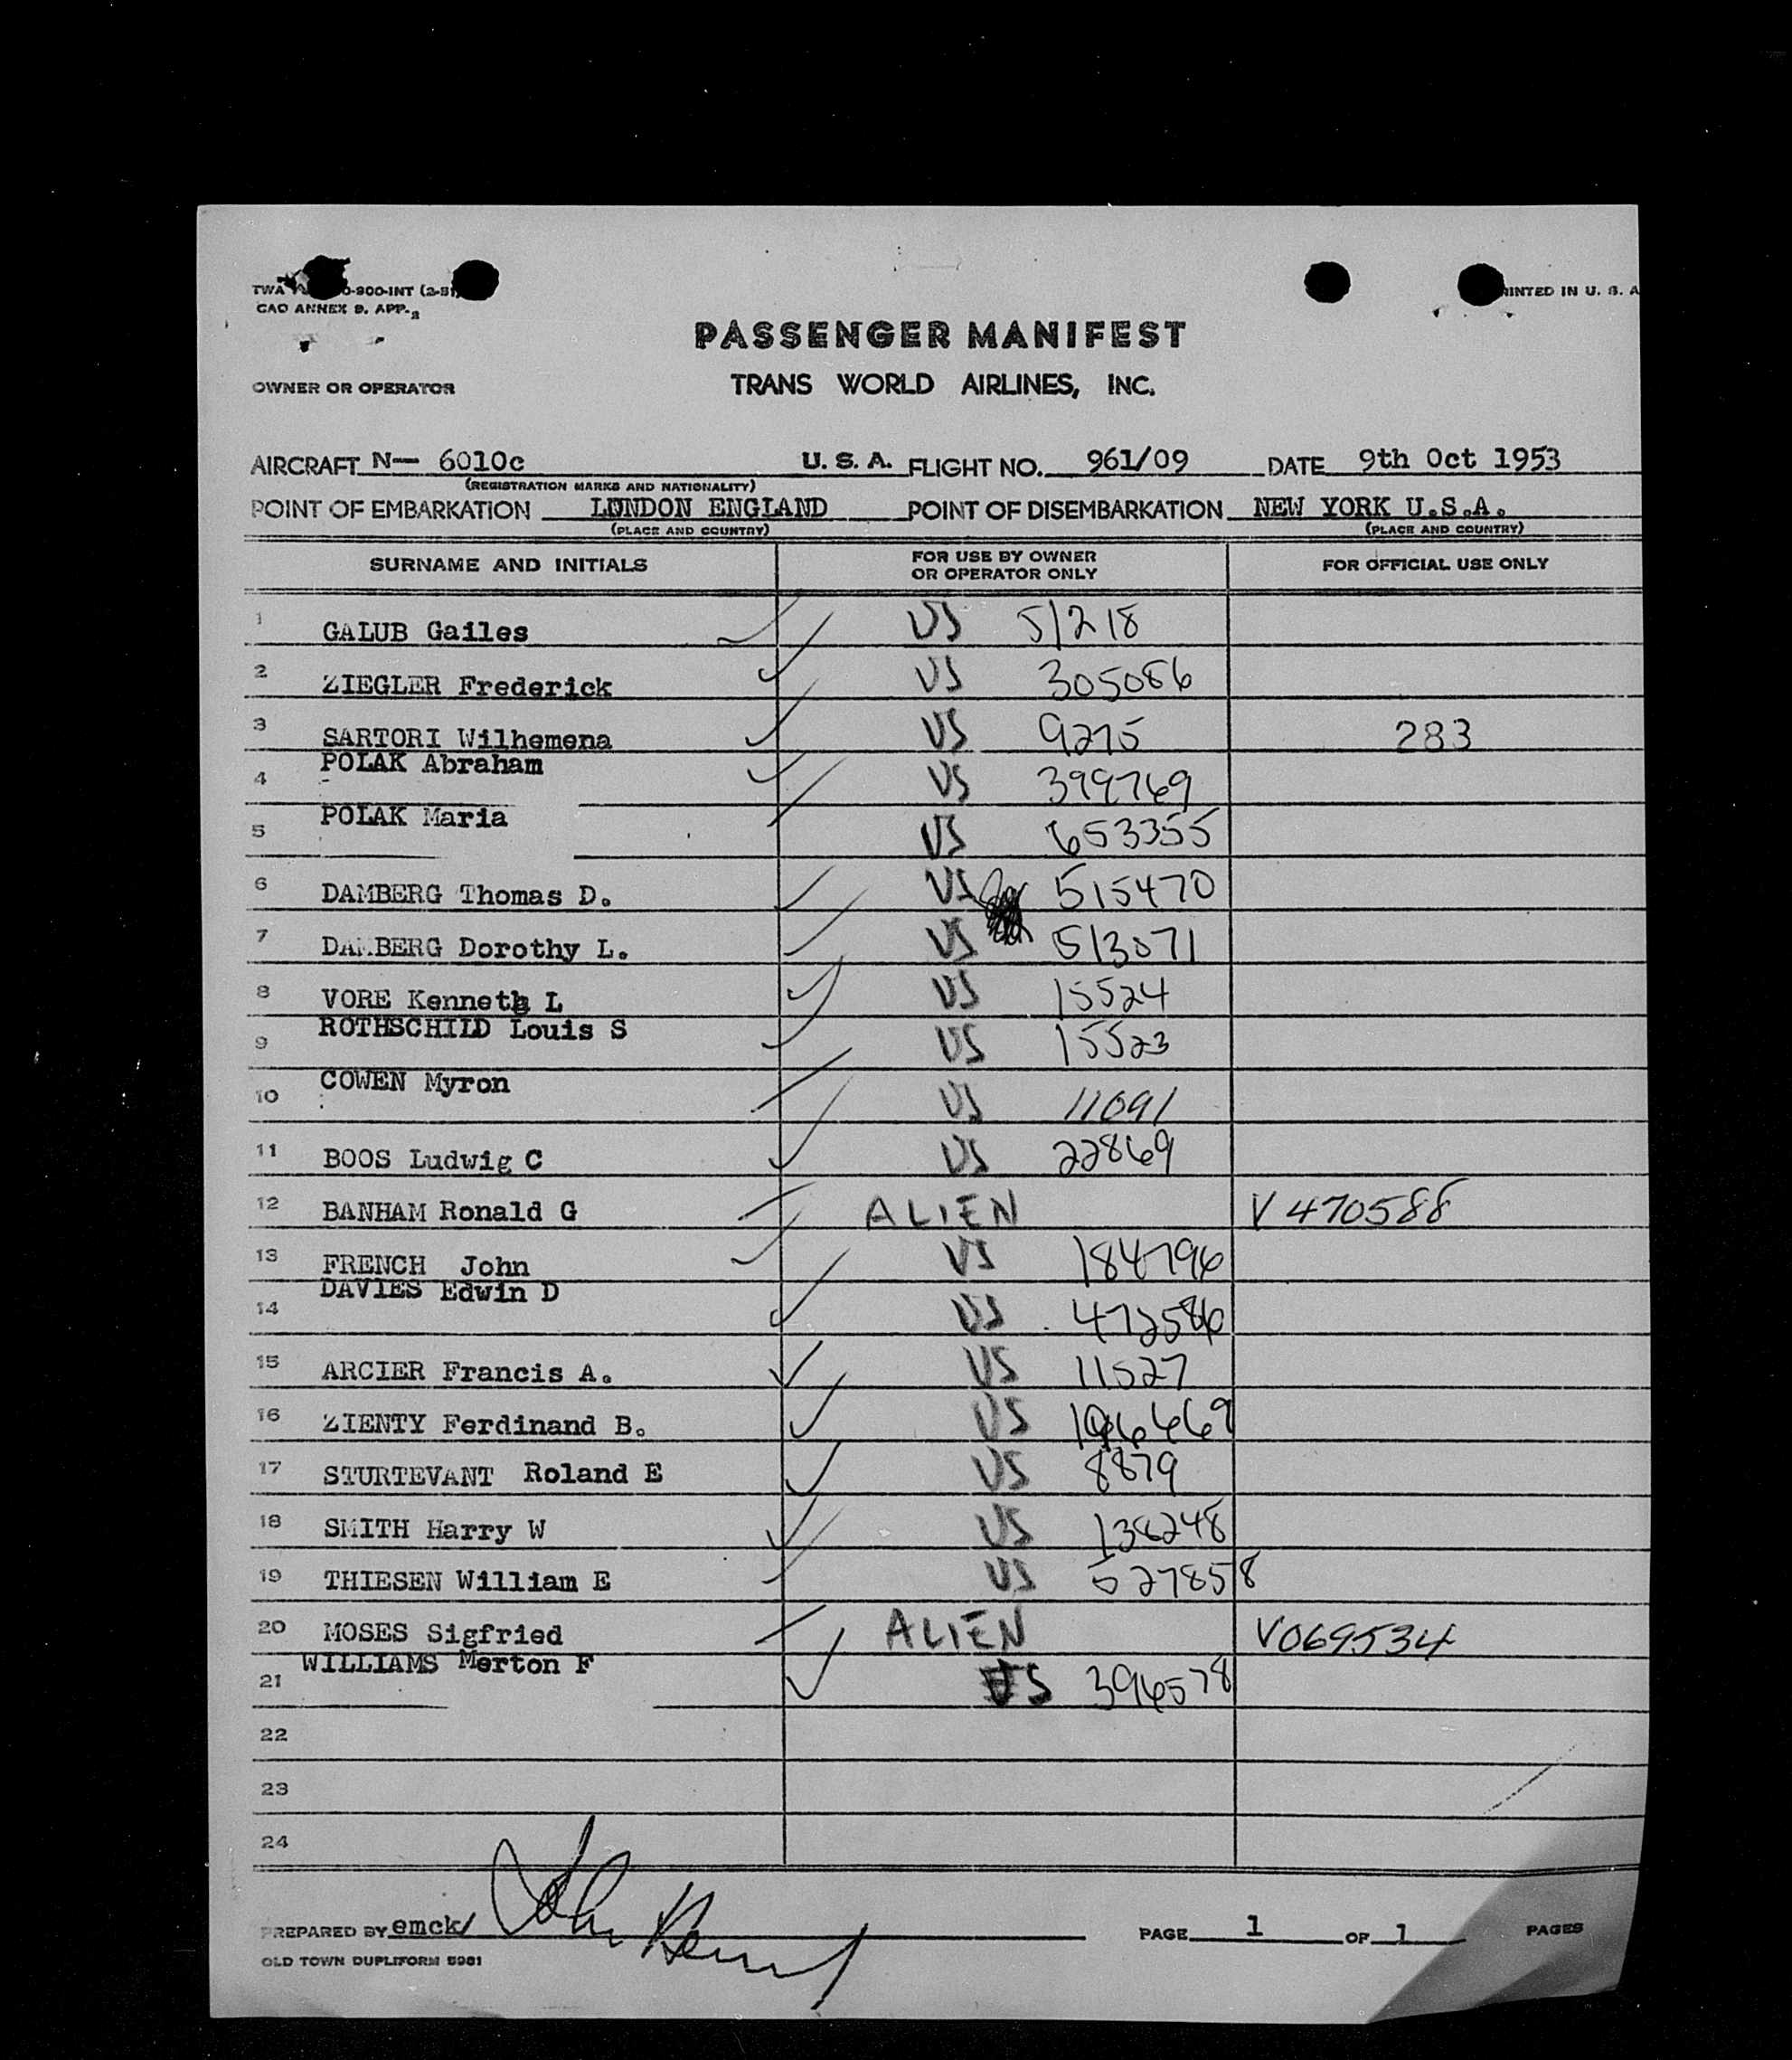 TWA 0-900-INT (2-51)
CAO ANNEX 9. APP. 2
PRINTED IN U. S. A
PASSENGER MANIFEST
OWNER OR OPERATOR TRANS WORLD AIRLINES, INC.
AIRCRAFT N— 6010c U. S. A. FLIGHT NO. 961/09 DATE 9th Oct 1953
(REGISTRATION MARKS AND NATIONALITY)
POINT OF EMBARKATION LONDON ENGLAND POINT OF DISEMBARKATION NEW YORK U.S.A.
(PLACE AND COUNTRY) (PLACE AND COUNTRY)
SURNAME AND INITIALS FOR USE BY OWNER OR OPERATOR ONLY FOR OFFICIAL USE ONLY
1 GALUB Gailes US 51218
2 ZIEGLER Frederick US 305086
3 SARTORI Wilhemena US 9275 283
4 POLAK Abraham US 399769
5 POLAK Maria US 653355
6 DAMBERG Thomas D. US 515470
7 DAMBERG Dorothy L. US 513071
8 VORE Kenneth L US 15524
9 ROTHSCHILD Louis S US 15523
10 COWEN Myron US 11091
11 BOOS Ludwig C US 22869
12 BANHAM Ronald G ALIEN V 470588
13 FRENCH John US 184796
14 DAVIES Edwin D US 472586
15 ARCIER Francis A. US 11527
16 ZIENTY Ferdinand B. US
17 STURTEVANT Roland E US 8879
18 SMITH Harry W US 138248
19 THIESEN William E US 527858
20 MOSES Sigfried ALIEN V069534
21 WILLIAMS Merton F US 396578
22
23
24
PREPARED BY emck/ John PAGE 1 OF 1 PAGES
OLD TOWN DUPLIFORM 5981